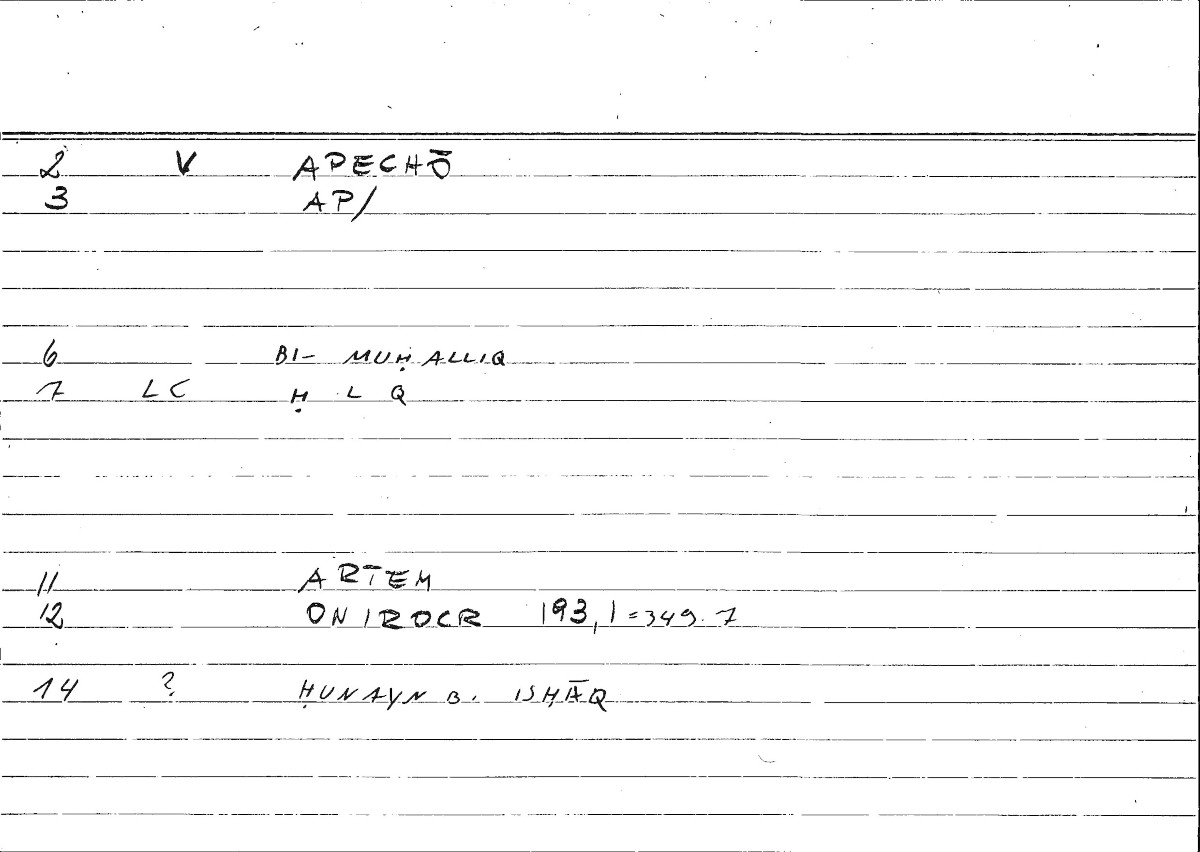 2 V APECHŌ
3 AP/
6 BI- MUḤALLIQ
7 LC Ḥ L Q
11 ARTEM
12 ONIROCR 193,1=349.7
14 ? ḤUNAYN B. ISḤĀQ